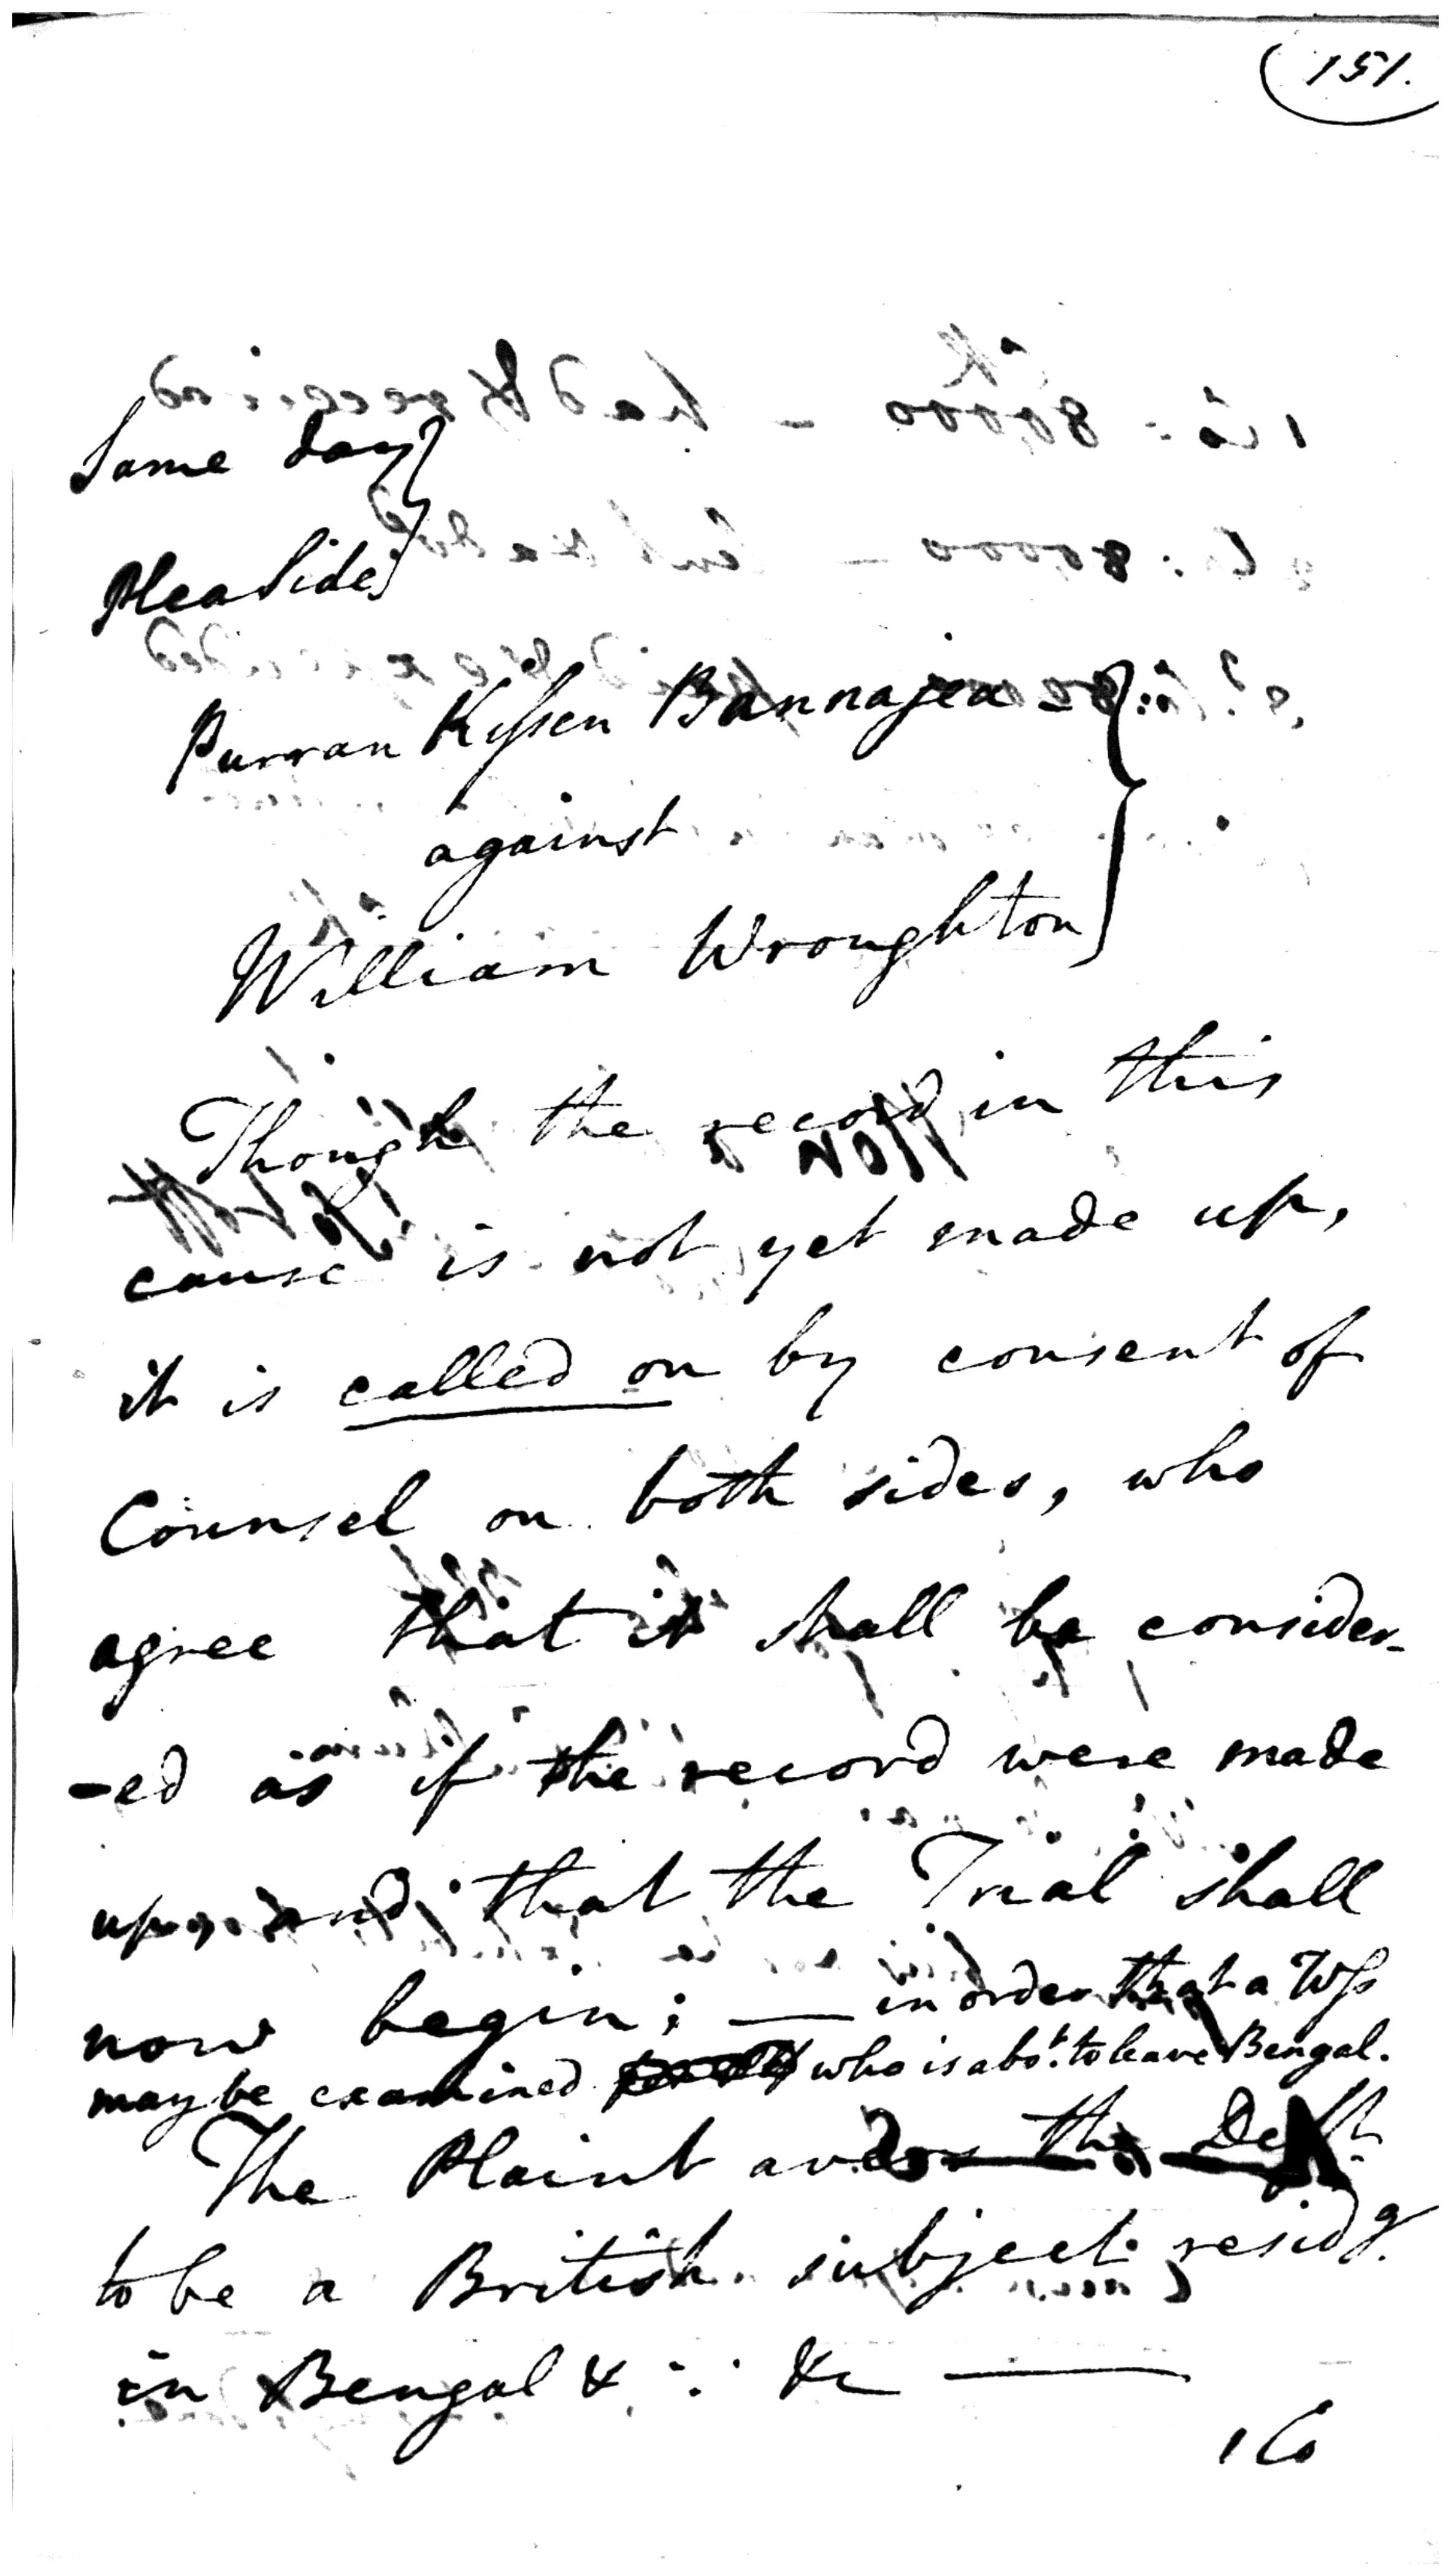 (151.
Same day
Plea Side
Purran Kissen Bannajea -
against
William Wroughton
Though the record in this
cause is not yet made up,
it is called on by consent of
Counsel on both sides, who
agree that it shall be consider-
-ed as if the record were made
up, and that the Trial shall
now begin; — in order that a Wss
may be examined who is abot. to leave Bengal.
The Plaint avers the Deft.
to be a British subject residg.
in Bengal & ∵ &c —
1 Co